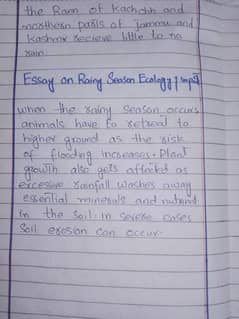 the Rann of Kachchh and
northern parts of jammu and
Kashmir recieve little to no
rain
Essay on Rainy Season Ecology / Impact
when the rainy season occurs
animals have to retreat to
higher ground as the risk
of flooding increases. Plant
growth also gets affected as
excessive rainfall washes away
essential minerals and nutrient
in the soil. in severe cases
Soil erosion can occur.